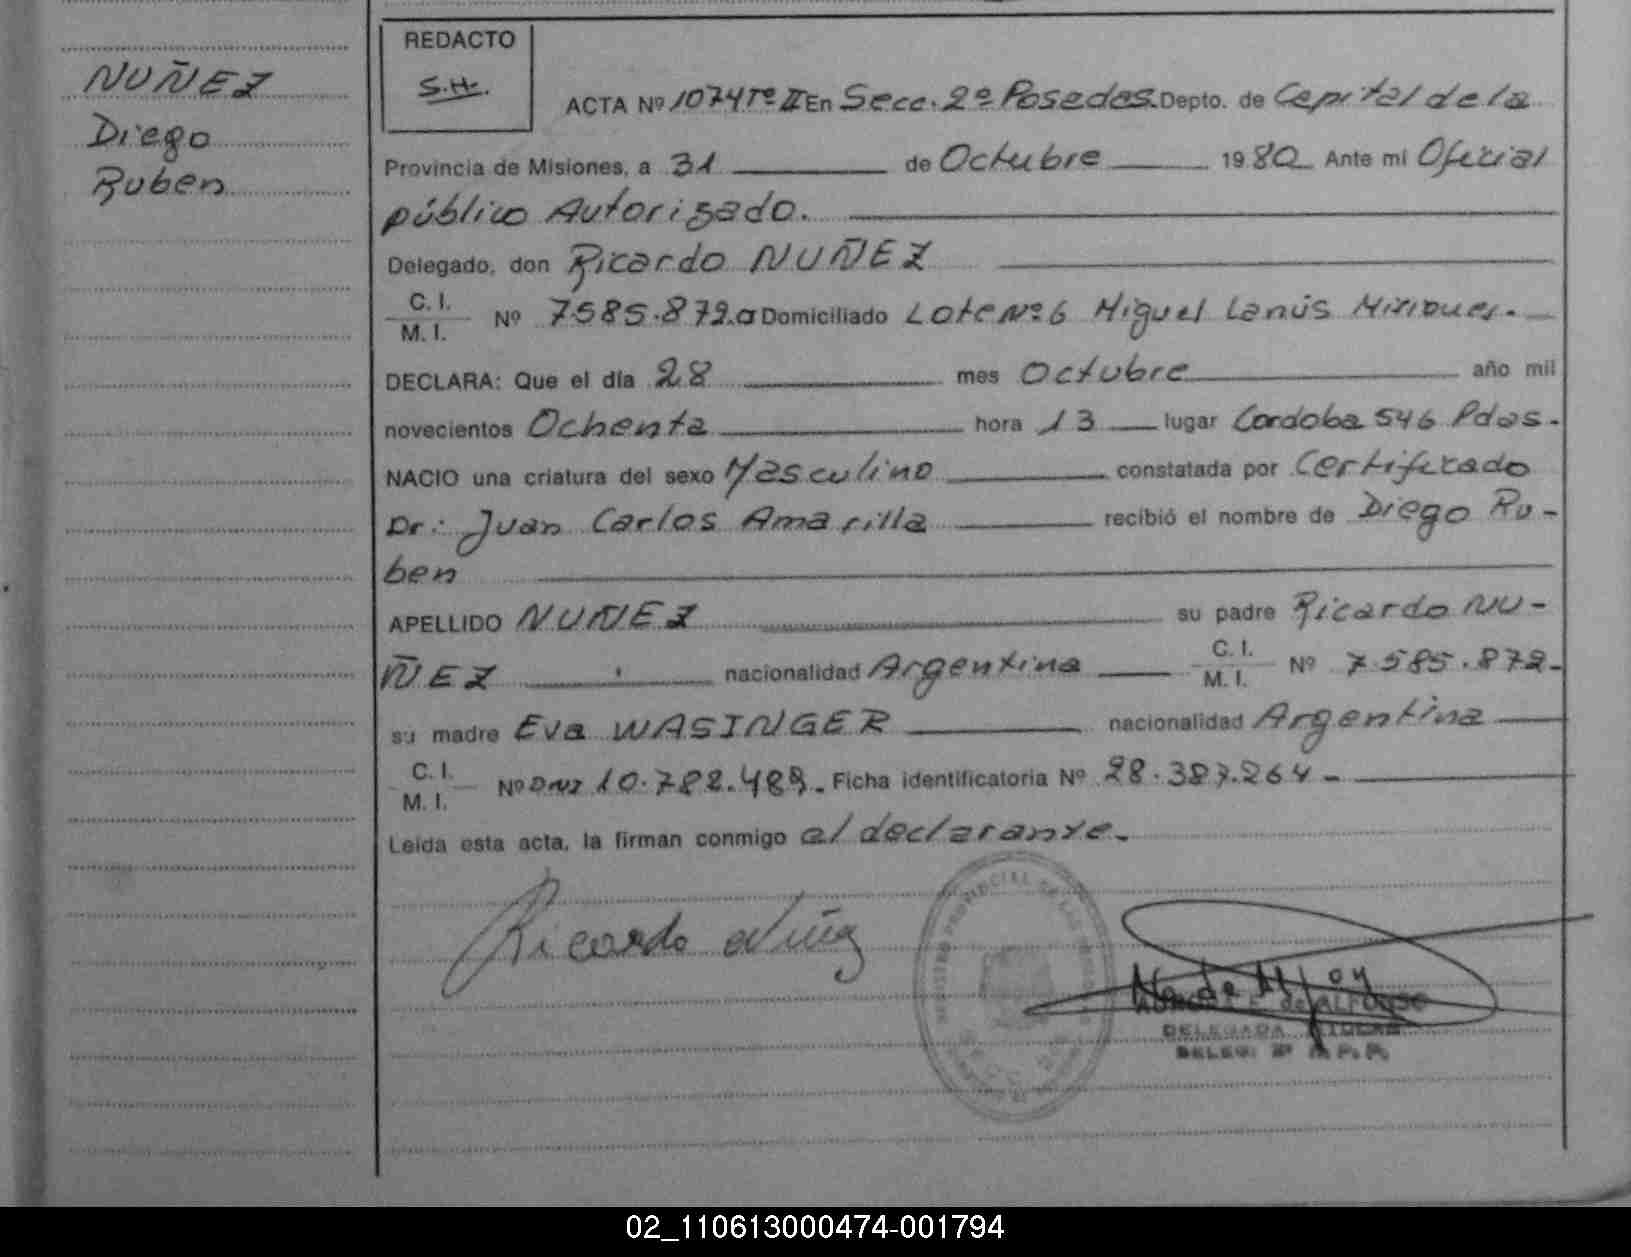 NUÑEZ
Diego
Ruben
REDACTO
S.H.
ACTA Nº 1074 Tº II En Secc. 2º Posadas. Depto. de Capital de la
Provincia de Misiones, a 31 de Octubre 1980 Ante mi Oficial
público Autorizado.
Delegado, don Ricardo NUÑEZ
C. I.
M. I. Nº 7585.872.a Domiciliado Lote Nº 6 Miguel Lanús Misiones.
DECLARA: Que el día 28 mes Octubre año mil
novecientos Ochenta hora 13 lugar Cordoba 546 Pdas.
NACIO una criatura del sexo Masculino constatada por Certificado
Dr.: Juan Carlos Amarilla recibió el nombre de Diego Ru-
ben
APELLIDO NUÑEZ su padre Ricardo NU-
ÑEZ nacionalidad Argentina C. I.
M. I. Nº 7.585.872.
su madre Eva WASINGER nacionalidad Argentina
C. I.
M. I. Nº DNI 10.782.489. Ficha identificatoria Nº 28.387.264.
Leída esta acta, la firman conmigo al declarante.
Ricardo Nuñez
de ALFONSO
DELEGADA TITULAR
DELEG. 2ª
02_110613000474-001794